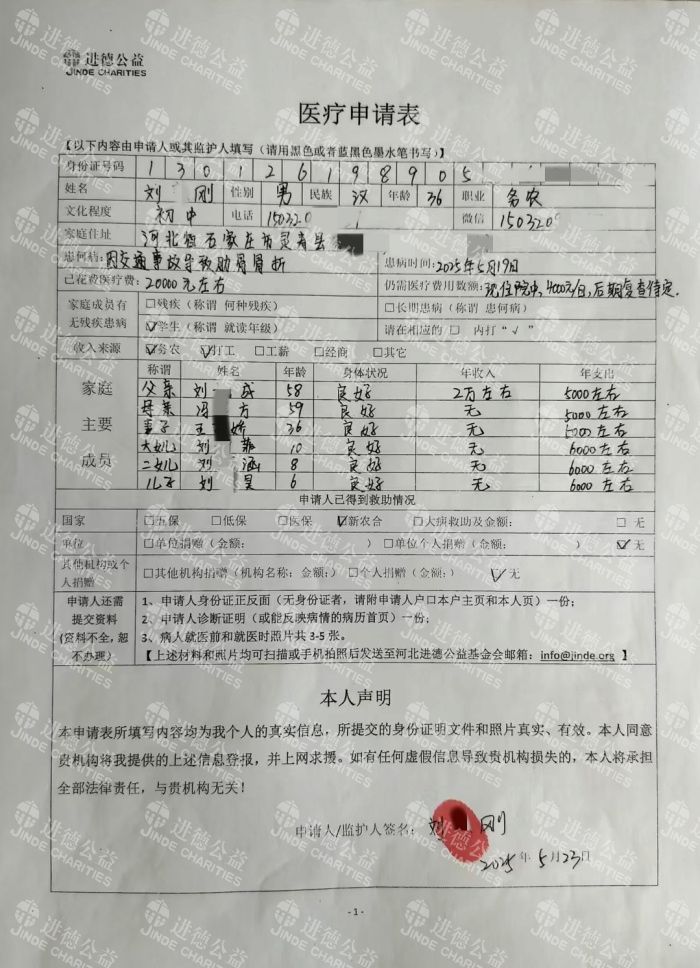 进德公益
JINDE CHARITIES
医疗申请表
【以下内容由申请人或其监护人填写（请用黑色或者蓝黑色墨水笔书写）】
身份证号码 1 3 0 1 2 6 1 9 8 9 0 5
姓名 刘 刚 性别 男 民族 汉 年龄 36 职业 务农
文化程度 初中 电话 150320 微信 150320
家庭住址 河北省石家庄市灵寿县
患何病：因交通事故导致肋骨骨折 患病时间：2025年5月19日
已花费医疗费：20000元左右 仍需医疗费用数额：现住院中，4000元/日，后期复查待定.
家庭成员有无残疾患病 □残疾（称谓 何种残疾） □长期患病（称谓 患何病）
☑学生（称谓 就读年级） 请在相应的 □ 内打“√”
收入来源 ☑务农 ☑打工 □工薪 □经商 □其它
家庭主要成员 称谓 姓名 年龄 身体状况 年收入 年支出
父亲 刘 成 58 良好 2万左右 5000左右
母亲 冯 方 59 良好 无 5000左右
妻子 王 娇 36 良好 无 5000左右
大女儿 刘 菲 10 良好 无 6000左右
二女儿 刘 涵 8 良好 无 6000左右
儿子 刘 昊 6 良好 无 6000左右
申请人已得到救助情况
国家 □五保 □低保 □医保 ☑新农合 □大病救助及金额： □ 无
单位 □单位捐赠（金额： ） □单位个人捐赠（金额： ） ☑无
其他机构或个人捐赠 □其他机构捐赠（机构名称：金额：） □个人捐赠（金额：） ☑无
申请人还需提交资料（资料不全，恕不办理） 1、申请人身份证正反面（无身份证者，请附申请人户口本户主页和本人页）一份；
2、申请人诊断证明（或能反映病情的病历首页）一份；
3、病人就医前和就医时照片共 3-5 张。
【上述材料和照片均可扫描或手机拍照后发送至河北进德公益基金会邮箱：info@jinde.org 】
本人声明
本申请表所填写内容均为我个人的真实信息，所提交的身份证明文件和照片真实、有效。本人同意
贵机构将我提供的上述信息登报，并上网求援。如有任何虚假信息导致贵机构损失的，本人将承担
全部法律责任，与贵机构无关！
申请人/监护人签名： 刘 刚
2025年5月23日
- 1 -